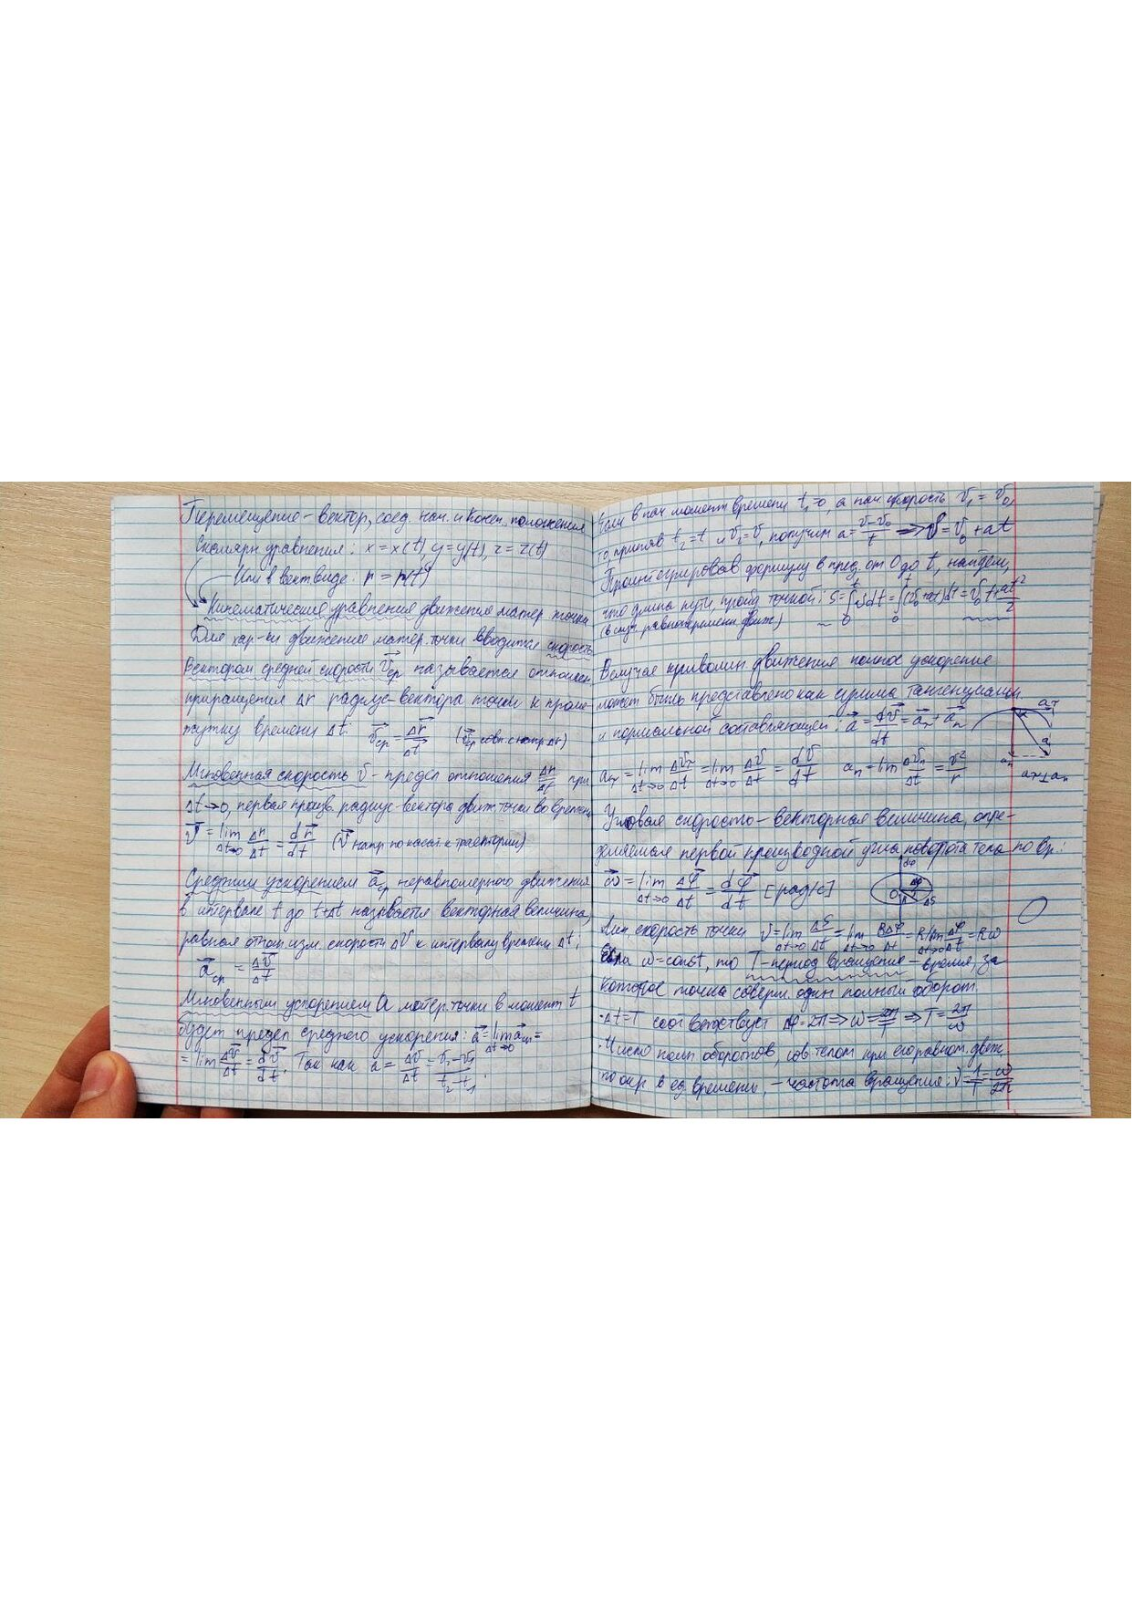 Перемещение – вектор, соед. нач. и конеч. положения
Скалярн уравнения: x = x(t), y = y(t), z = z(t)
Или в вект виде: r = r(t)
Кинематические уравнения движения матер точки
Для хар-ки движения матер. точки вводится скорость
Вектором средней скорости v⃗ср называется отношен
приращения Δr радиус-вектора точки к проме-
жутку времени Δt: v⃗ср = Δr⃗/Δt (v⃗ср совп. с напр Δr)
Мгновенная скорость v – предел отношения Δr/Δt при
Δt→0, первая произв. радиус-вектора движ точки во времени
v⃗ = lim Δt→0 Δr/Δt = dr⃗/dt (v⃗ напр по касат. к траектории)
Средним ускорением a⃗ср неравномерного движения
в интервале t до t+Δt называется векторная величина,
равная отнош изм. скорости Δv к интервалу времени Δt:
a⃗ср = Δv⃗/Δt
Мгновенным ускорением a матер. точки в момент t
будет предел среднего ускорения: a⃗ = lim Δt→0 a⃗ср =
= lim Δt→0 Δv⃗/Δt = dv⃗/dt. Так как a = Δv/Δt = v₂-v₁/t₂-t₁;
Если в нач момент времени t₁=0, а нач скорость v₁ = v₀,
то, приняв t₂=t и v₂=v, получим a = v-v₀/t ⟹ v = v₀ + at
Проинтегрировав формулу в пред. от 0 до t, найдем,
что длина пути, пройд точкой: S = ∫₀ᵗ v dt = ∫₀ᵗ (v₀+at)dt = v₀t + at²/2
(в случ. равноперемен движ)
В случае криволин движения полное ускорение
может быть представлено как сумма тангенциальн
и нормальной составляющей: a⃗ = dv⃗/dt = a⃗τ + a⃗n
aτ = lim Δt→0 Δvτ/Δt = lim Δt→0 Δv/Δt = dv/dt an = lim Δt→0 Δvn/Δt = v²/r
aτ
a
an
aτ⊥an
Угловая скорость – векторная величина, опре-
деляемая первой производной угла поворота тела по вр:
ω⃗ = lim Δt→0 Δφ⃗/Δt = dφ⃗/dt [рад/с]
O Δφ ΔS
Лин скорость точки v = lim Δt→0 ΔS/Δt = lim Δt→0 RΔφ/Δt = R lim Δt→0 Δφ/Δt = Rω
Если ω = const, то T – период вращения – время, за
которое точка соверш. один полный оборот.
· Δt=T соответствует Δφ = 2π ⟹ ω = 2π/T ⟹ T = 2π/ω
· Число полн оборотов, сов телом при его равном. движ
по окр в ед времени, – частота вращения: ν = 1/T = ω/2π